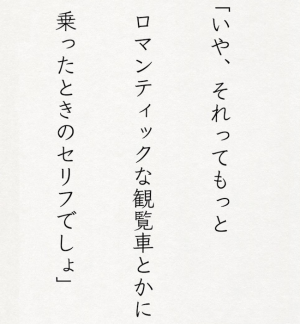 「いや、それってもっと
ロマンティックな観覧車とかに
乗ったときのセリフでしょ」